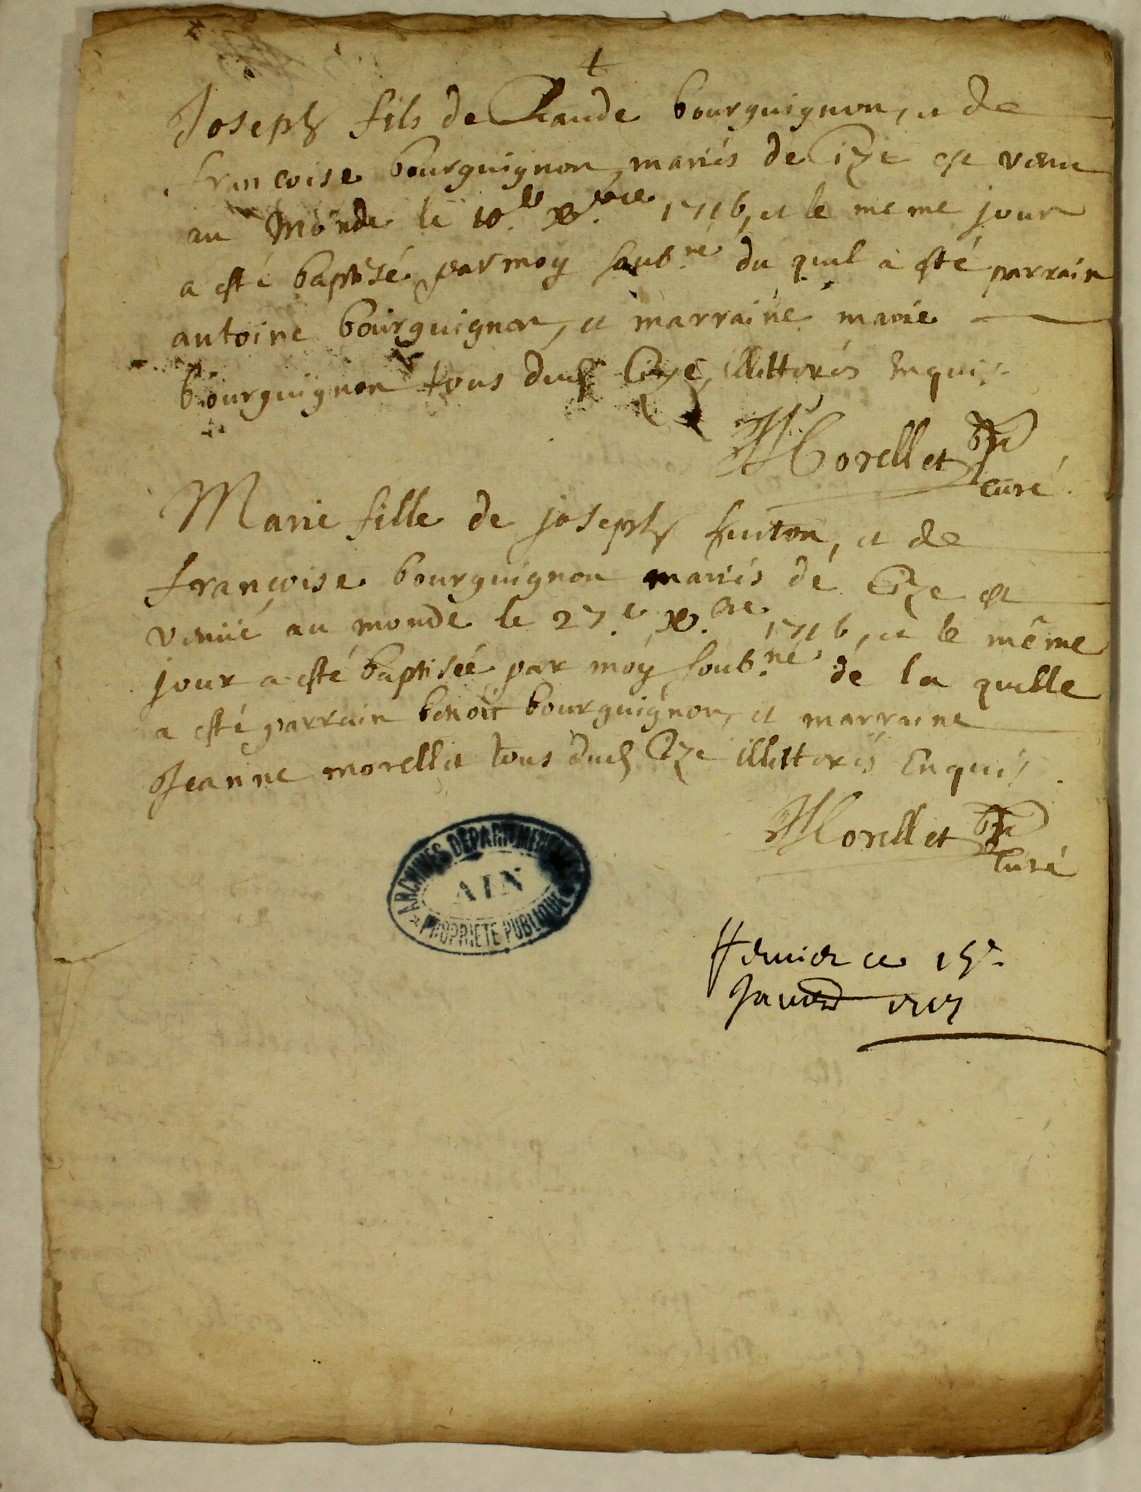 Joseph fils de Claude bourguignon, et de
françoise bourguignon mariés de Cize est venu
au Monde le 10.e x.bre 1716, et le meme jour
a esté baptisé par moy soub.né du quel a esté parrain
antoine bourguignon, et marraine marie
bourguignon tous dud Cize, illitterés Enquis
Morellet
curé
Marie fille de joseph et de
françoise bourguignon mariés de Cize est
venüe au monde le 27.e x.bre 1716, et le même
jour a esté baptisée par moy soub.né de la quelle
a esté parrain benoit bourguignon, et marraine
Jeanne morellet tous dud Cize illitterés Enquis
Morellet
Curé
ARCHIVES DÉPARTEMENTALES
AIN
PROPRIÉTÉ PUBLIQUE
ce 15e
1717